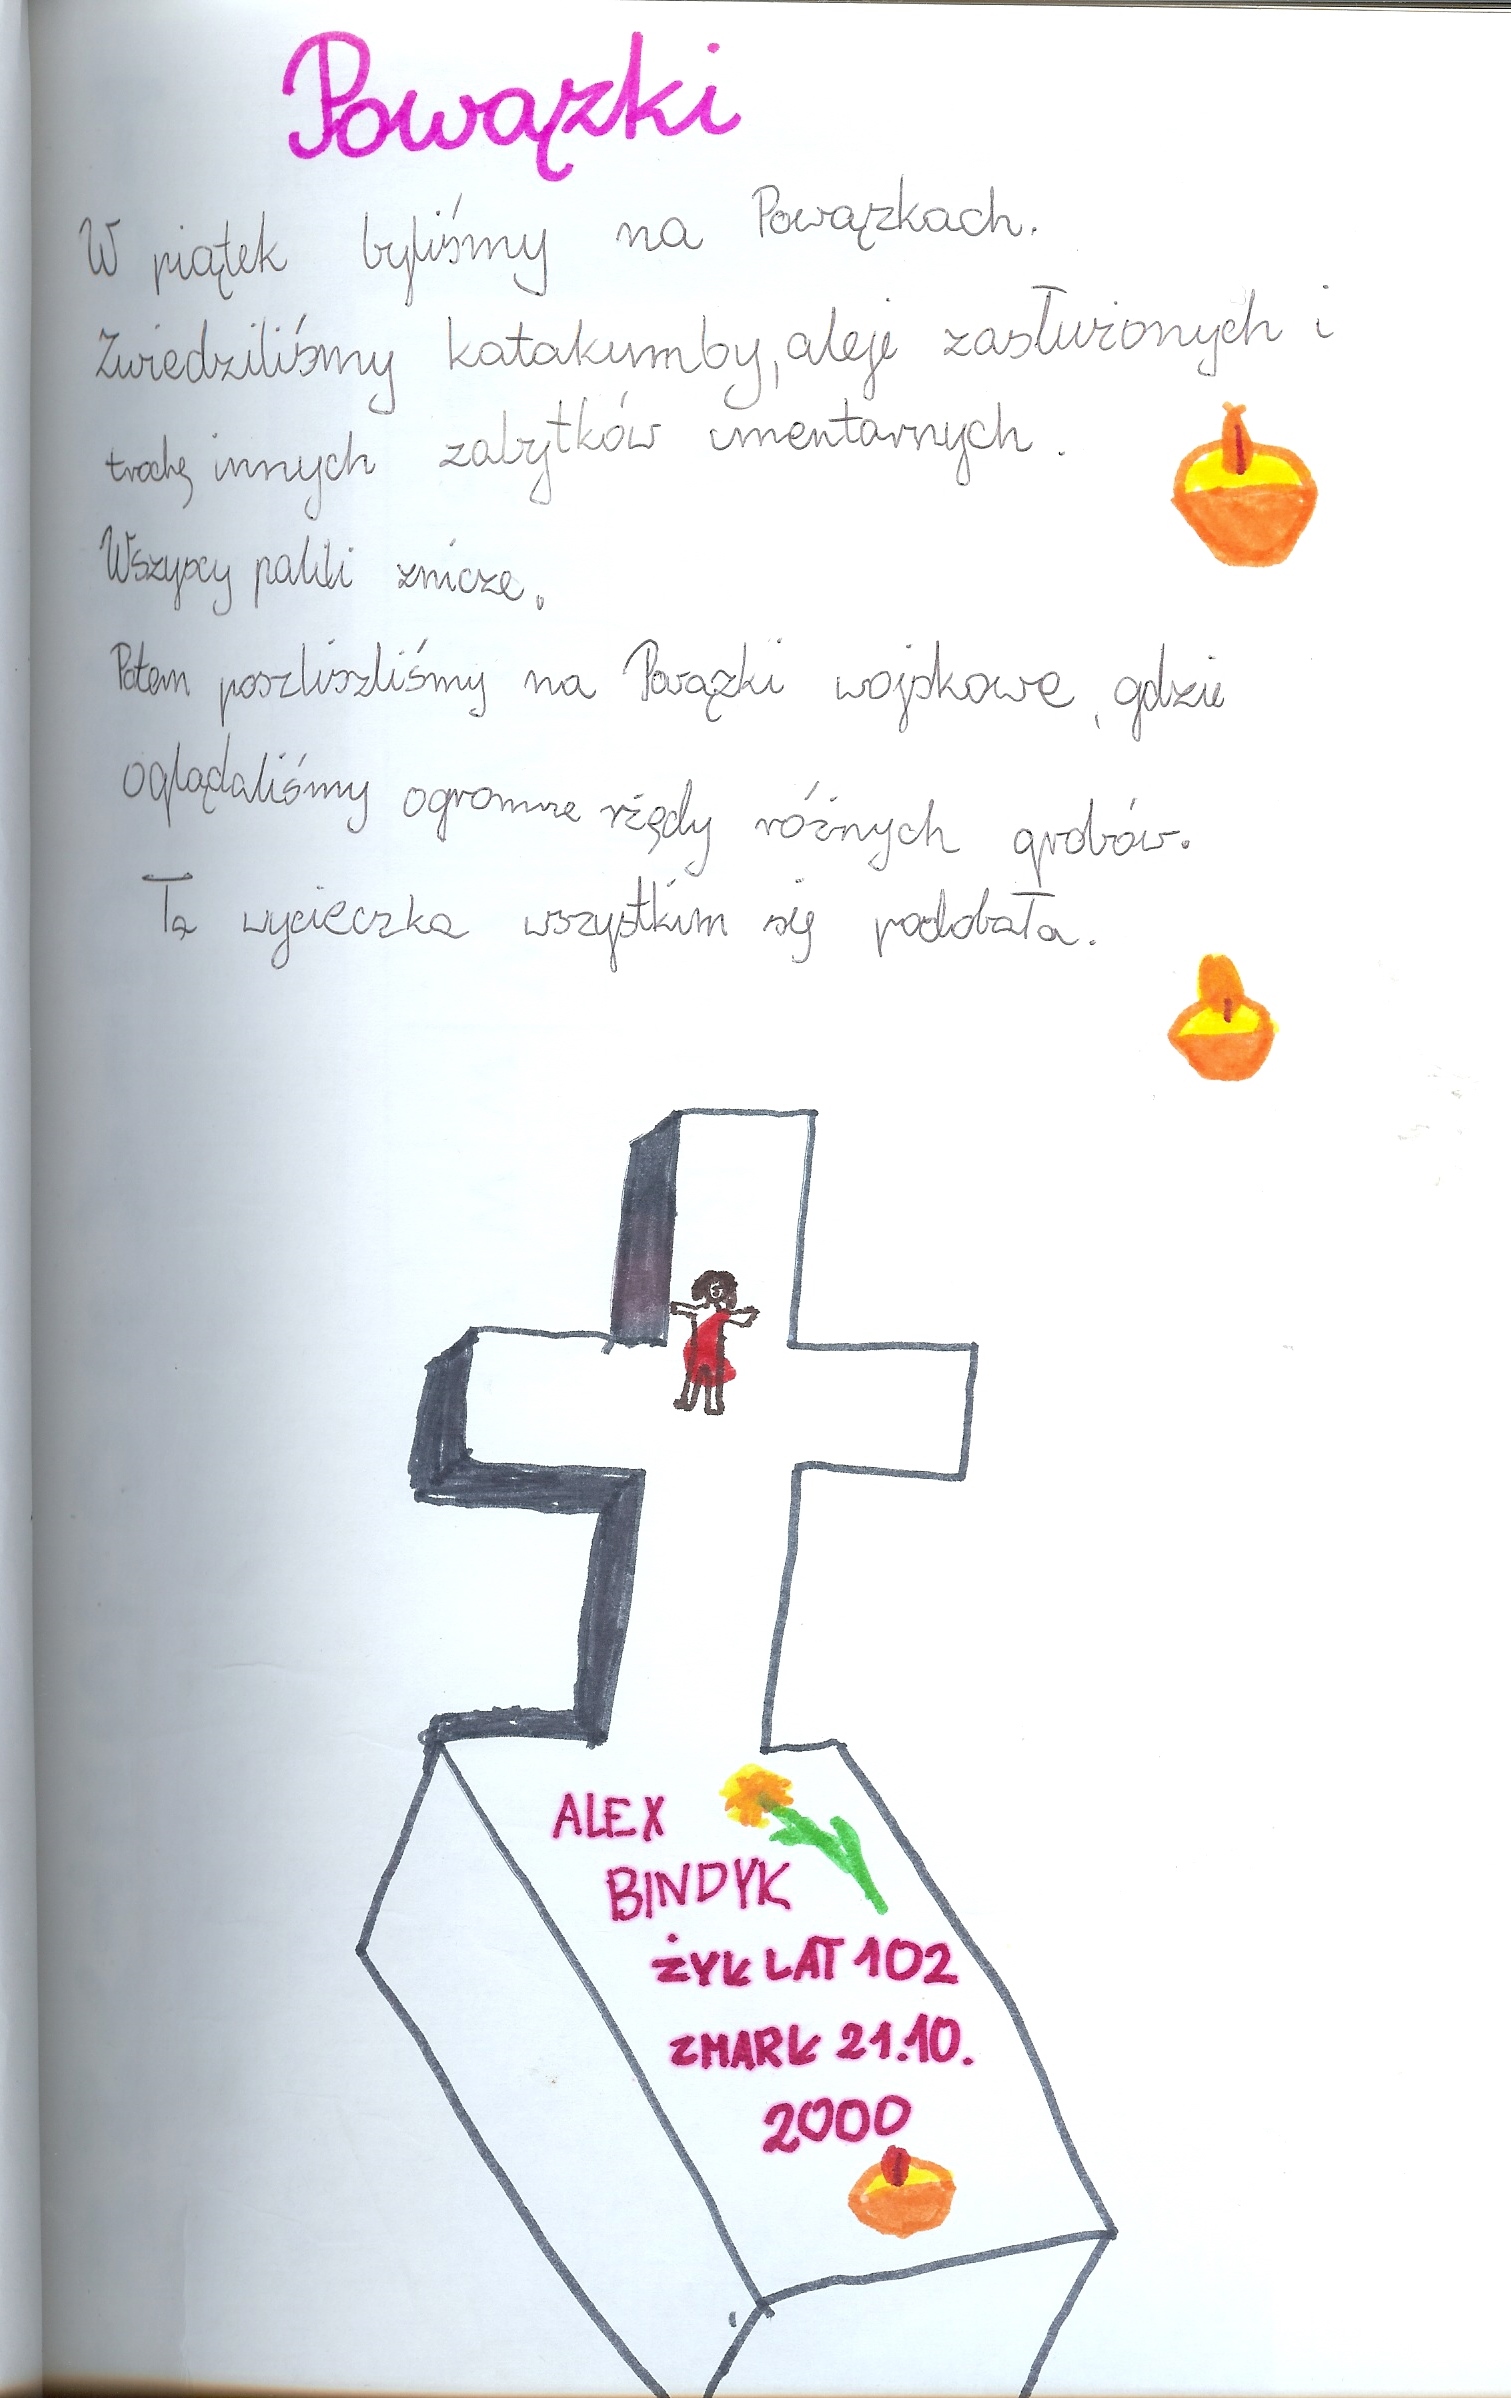 Powązki
W piątek byliśmy na Powązkach.
Zwiedziliśmy katakumby, aleje zasłużonych i
trochę innych zabytków cmentarnych.
Wszyscy palili znicze.
Potem poszliszliśmy na Powązki wojskowe, gdzie
oglądaliśmy ogromne rżędy różnych grobów.
Ta wycieczka wszystkim się podobała.
ALEX
BINDYK
ŻYŁ LAT 102
ZMARŁ 21.10.
2000